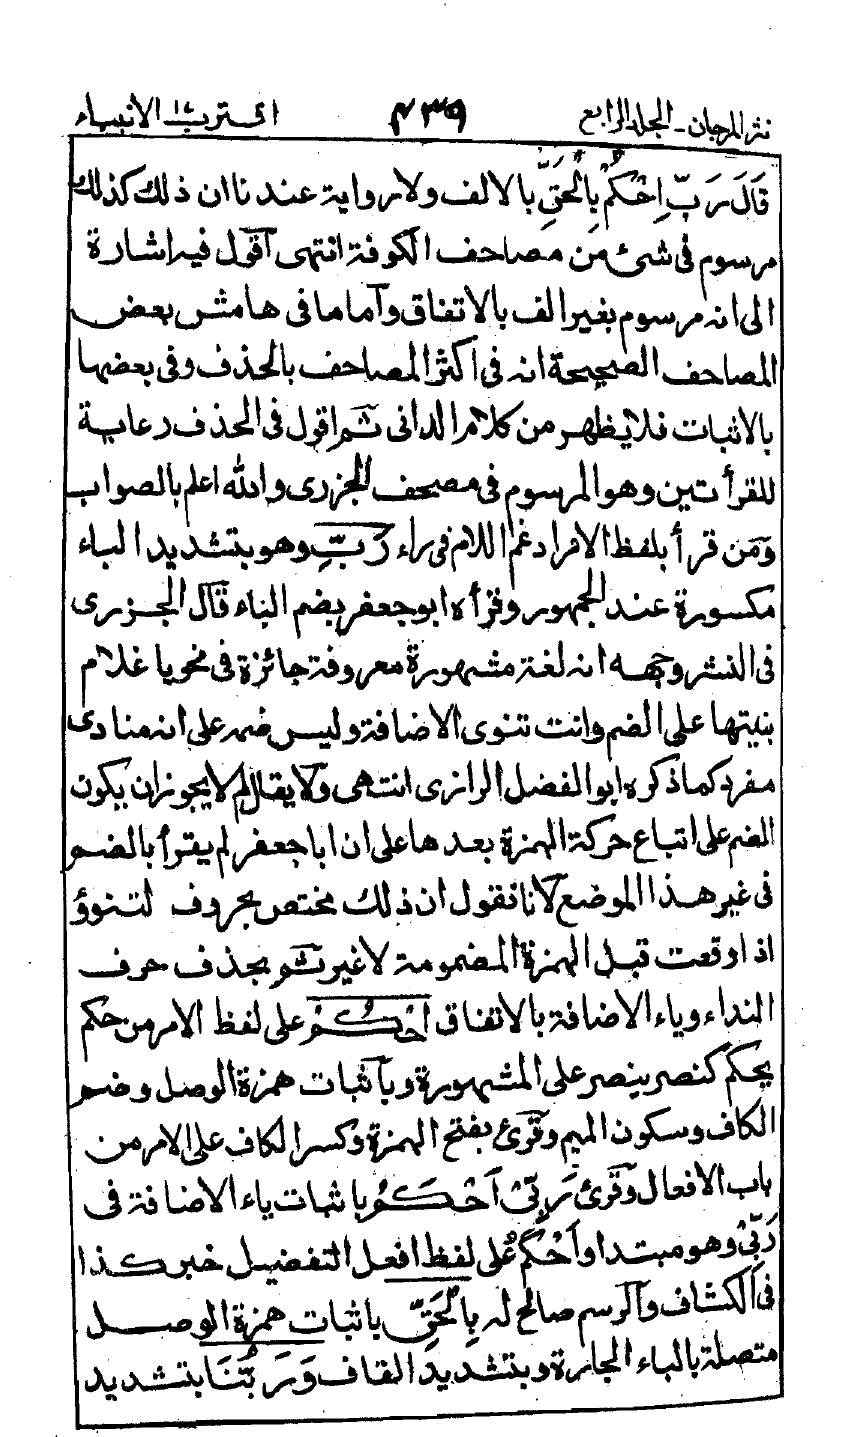 نثر المرجان ـ الجلد الرابع ٤٣٩ اقترب ١٧ الانبياء
قَالَ رَبِّ احْكُمْ بِالْحَقِّ بالالف ولا رواية عندنا ان ذلك كذلك
مرسوم فى شئ من مصاحف الكوفة انتهى اقول فيه اشارة
الى انه مرسوم بغير الف بالاتفاق وآما ما فى هامش بعض
المصاحف الصحيحة انه فى اكثر المصاحف بالحذف وفى بعضها
بالاثبات فلا يظهر من كلام الدانى ثم اقول فى الحذف رعاية
للقرأتين وهو المرسوم فى مصحف الجزرى والله اعلم بالصواب
ومن قرأ بلفظ الامر ادغم اللام فى راء رَبِّ وهو بتشديد الباء
مكسورة عند الجمهور وقرأه ابو جعفر بضم الباء قال الجزرى
فى النشر وجهه انه لغة مشهورة معروفة جائزة فى نحو يا غلام
بنيتها على الضم وانت تنوى الاضافة وليس ضمه على انه منادى
مفرد كما ذكره ابو الفضل الرازى انتهى ولا يقال لم لا يجوز ان يكون
الضم على اتباع حركة الهمزة بعدها على ان ابا جعفر لم يقرأ بالضم
فى غير هذا الموضع لانا نقول ان ذلك مختص بحروف
اذا وقعت قبل الهمزة المضمومة لا غير بحذف حرف
النداء وياء الاضافة بالاتفاق احْكُمْ على لفظ الامر من حكم
يحكم كنصر ينصر على المشهورة وبآثبات همزة الوصل وضم
الكاف وسكون الميم وقرئ بفتح الهمزة وكسر الكاف على الامر من
باب الافعال وقرئ رَبِّىْ اَحْكَمُ باثبات ياء الاضافة فى
رَبِّىْ وهو مبتدا واَحْكَمُ على لفظ افعل التفضيل خبر كذا
فى الكشاف وآلرسم صالح له بِالْحَقِّ باثبات همزة الوصل
متصلة بالباء الجارة وبتشديد القاف وَرَبُّنَا بتشديد